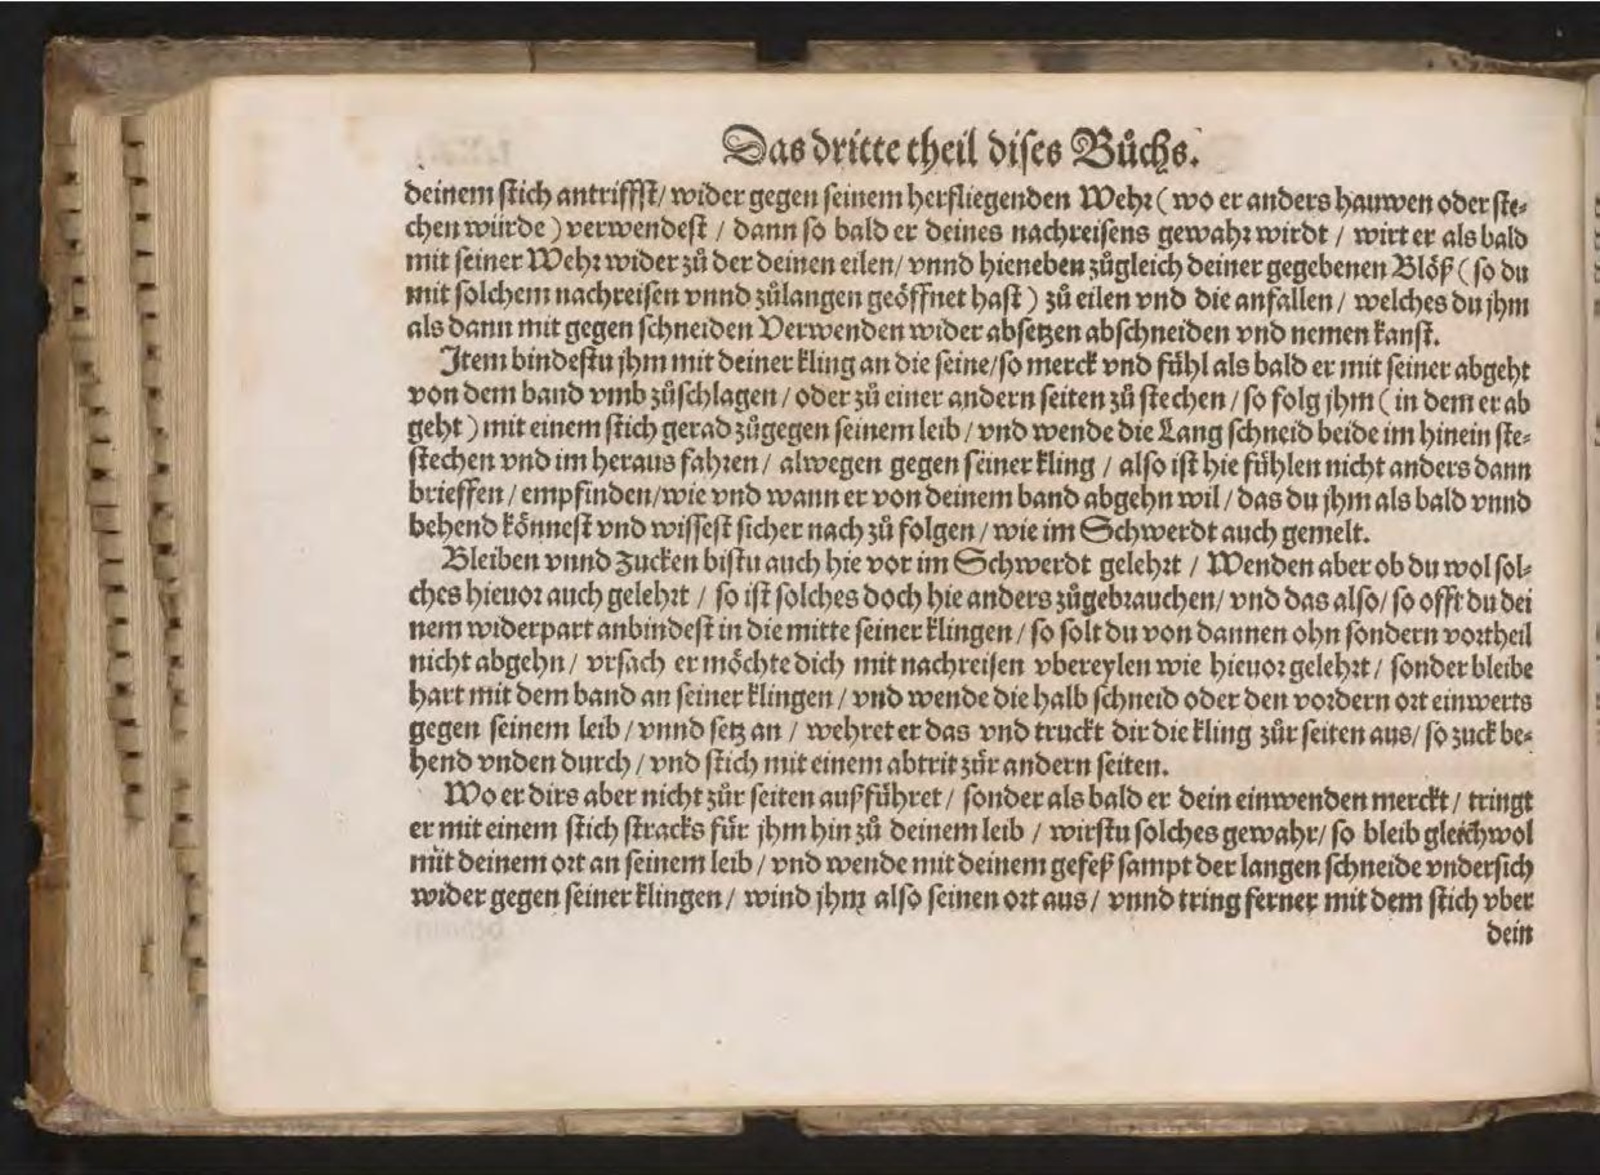 Das dritte theil dises Bůchs.
deinem stich antriffst/ wider gegen seinem herfliegenden Wehr ( wo er anders hauwen oder ste⸗
chen würde ) verwendest / dann so bald er deines nachreisens gewahr wirdt / wirt er als bald
mit seiner Wehr wider zů der deinen eilen/ vnnd hieneben zůgleich deiner gegebenen Blöß ( so du
mit solchem nachreisen vnnd zůlangen geöffnet hast ) zů eilen vnd die anfallen / welches du jhm
als dann mit gegen schneiden Verwenden wider absetzen abschneiden vnd nemen kanst.
Item bindestu jhm mit deiner kling an die seine/so merck vnd fühl als bald er mit seiner abgeht
von dem band vmb zůschlagen / oder zů einer andern seiten zů stechen / so folg jhm ( in dem er ab
geht ) mit einem stich gerad zůgegen seinem leib / vnd wende die Lang schneid beide im hinein ste⸗
stechen vnd im heraus fahren / alwegen gegen seiner kling / also ist hie fühlen nicht anders dann
brieffen / empfinden/wie vnd wann er von deinem band abgehn wil / das du jhm als bald vnnd
behend könnest vnd wissest sicher nach zů folgen / wie im Schwerdt auch gemelt.
Bleiben vnnd Zucken bistu auch hie vor im Schwerdt gelehrt / Wenden aber ob du wol sol⸗
ches hieuor auch gelehrt / so ist solches doch hie anders zůgebrauchen/ vnd das also/ so offt du dei
nem widerpart anbindest in die mitte seiner klingen / so solt du von dannen ohn sondern vortheil
nicht abgehn / vrsach er möchte dich mit nachreisen vbereylen wie hieuor gelehrt / sonder bleibe
hart mit dem band an seiner klingen / vnd wende die halb schneid oder den vordern ort einwerts
gegen seinem leib / vnnd setz an / wehret er das vnd truckt dir die kling zůr seiten aus/ so zuck be⸗
hend vnden durch / vnd stich mit einem abtrit zůr andern seiten.
Wo er dirs aber nicht zůr seiten außführet / sonder als bald er dein einwenden merckt / tringt
er mit einem stich stracks für jhm hin zů deinem leib / wirstu solches gewahr/ so bleib gleichwol
mit deinem ort an seinem leib / vnd wende mit deinem gefeß sampt der langen schneide vndersich
wider gegen seiner klingen / wind jhm also seinen ort aus / vnnd tring ferner mit dem stich vber
dein